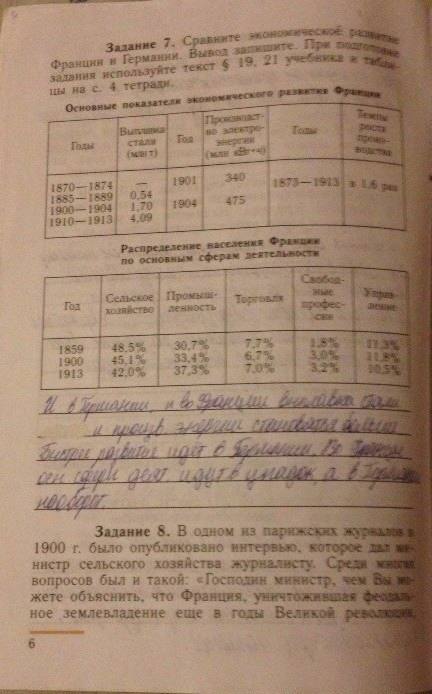 Задание 7. Сравните экономическое развитие
Франции и Германии. Вывод запишите. При подготовке
задания используйте текст § 19, 21 учебника и табли-
цы на с. 4 тетради.
Основные показатели экономического развития Франции
Годы Выплавка стали (млн т) Год Производст-во электро-энергии (млн кВт•ч) Годы Темпы роста произ-водства
1870—1874 — 1901 340 1873—1913 в 1,6 раз
1885—1889 0,54
1900—1904 1,70 1904 475
1910—1913 4,09
Распределение населения Франции
по основным сферам деятельности
Год Сельское хозяйство Промыш-ленность Торговля Свобод-ные профес-сии Управ-ление
1859 48,5% 30,7% 7,7% 1,8% 11,3%
1900 45,1% 33,4% 6,7% 3,0% 11,8%
1913 42,0% 37,3% 7,0% 3,2% 10,5%
И в Германии, и во Франции выплавка стали
и произв. энергии становятся больше
Быстрее развитие идёт в Германии. Во Франции
осн сферы деят. идут в упадок, а в Германии
наоборот.
Задание 8. В одном из парижских журналов в
1900 г. было опубликовано интервью, которое дал ми-
нистр сельского хозяйства журналисту. Среди многих
вопросов был и такой: «Господин министр, чем Вы мо-
жете объяснить, что Франция, уничтожившая феодаль-
ное землевладение еще в годы Великой революции,
6